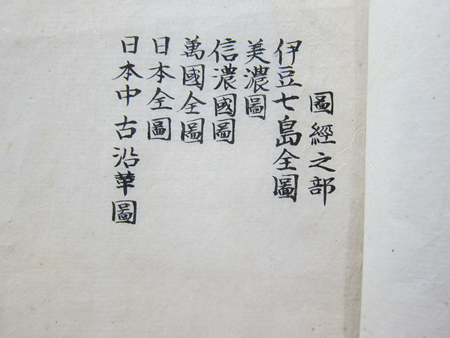 圖經之部
伊豆七島全圖
美濃圖
信濃國圖
萬國全圖
日本全圖
日本中古沿革圖